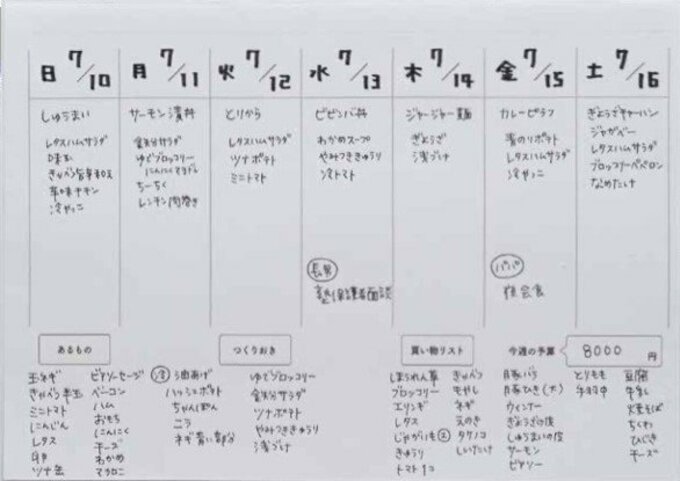 日 7/10
しゅうまい
レタスハムサラダ
冷やっこ
月 7/11
サーモン漬丼
ゆでブロッコリー
ちーちく
レンチン肉巻き
火 7/12
とりから
レタスハムサラダ
ツナポテト
ミニトマト
水 7/13
ビビンバ丼
わかめスープ
やみつききゅうり
冷トマト
長男
塾保護者面談
木 7/14
ジャージャー麺
ぎょうざ
浅づけ
金 7/15
カレーピラフ
青のりポテト
レタスハムサラダ
冷やっこ
パパ
夜会食
土 7/16
ぎょうざチャーハン
ジャがべー
レタスハムサラダ
ブロッコリーペペロン
なめたけ
あるもの
玉ネギ
きゃべつ半玉
ミニトマト
にんじん
レタス
卵
ツナ缶
ビアソーセージ
ベーコン
ハム
おもち
にんにく
チーズ
わかめ
マカロニ
冷 油あげ
ハッシュポテト
ちゃんぽん
ニラ
ネギ青い部分
つくりおき
ゆでブロッコリー
ツナポテト
やみつききゅうり
浅づけ
買い物リスト
ほうれん草
ブロッコリー
エリンギ
レタス
じゃがいも②
きゅうり
トマト1コ
きゃべつ
もやし
ネギ
えのき
タケノコ
しいたけ
今週の予算 8000 円
豚バラ
豚ひき(大)
ウィンナー
ぎょうざの皮
しゅうまいの皮
サーモン
ビアソー
とりもも
手羽中
豆腐
牛乳
火焼そば
ちくわ
ひじき
チーズ